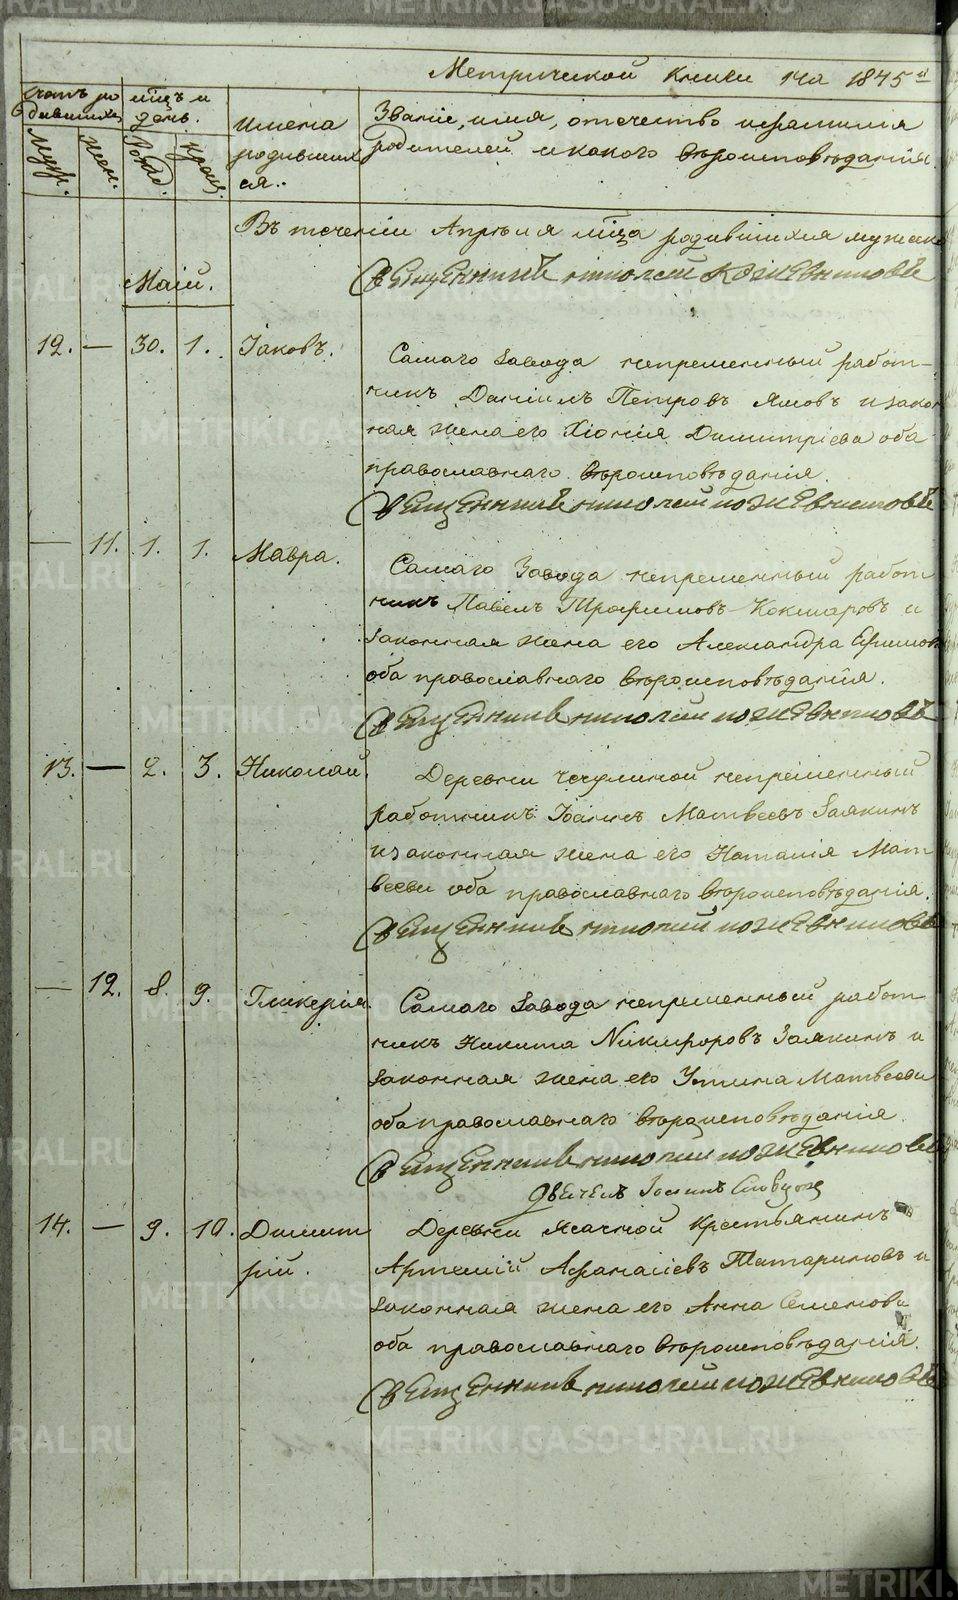 Метрической книги на 1845й
Счетъ родившихся
мцъ и день.
Муж.
жен.
Рожд.
Крещ.
имена родившихся.
Званіе, имя, отечество и фамилія
родителей и какого вѣроисповѣданія.
Въ теченіи Апрѣля мца родившихся мужеска
Священникъ Николай Кожевниковъ
Маій.
12. — 30. 1. Іаковъ.
Самаго Завода непременный работ-
никъ Даніилъ Петровъ Ямовъ и закон
ная жена его Хіонія Димитріева оба
православнаго вѣроисповѣданія.
Священникъ Николай Кожевниковъ
— 11. 1. 1. Мавра.
Самаго Завода непременный работ
никъ Павелъ Трофимовъ Кокшаровъ и
законная жена его Александра Ефимова
оба православнаго вѣроисповѣданія.
Священникъ Николай Кожевниковъ
13. — 2. 3. Николай.
Деревни непременный
работникъ Іоаннъ Матвеевъ Заякинъ
и законная жена его Наталія Мат
веева оба православнаго вѣроисповѣданія.
Священникъ Николай Кожевниковъ
— 12. 8. 9. Гликерія.
Самаго Завода непременный работ
никъ Никита Никифоровъ Заякинъ и
законная жена его Устина Матвеева
оба православнаго вѣроисповѣданія.
Священникъ Николай Кожевниковъ
Іоаннъ Словцовъ
14. — 9. 10. Димит
рій.
Деревни Ясачной Крестьянинъ
Артемій Афанасіевъ Татариновъ и
законная жена его Анна Семенова
оба православнаго вѣроисповѣданія.
Священникъ Николай Кожевниковъ
METRIKI.GASO-URAL.RU